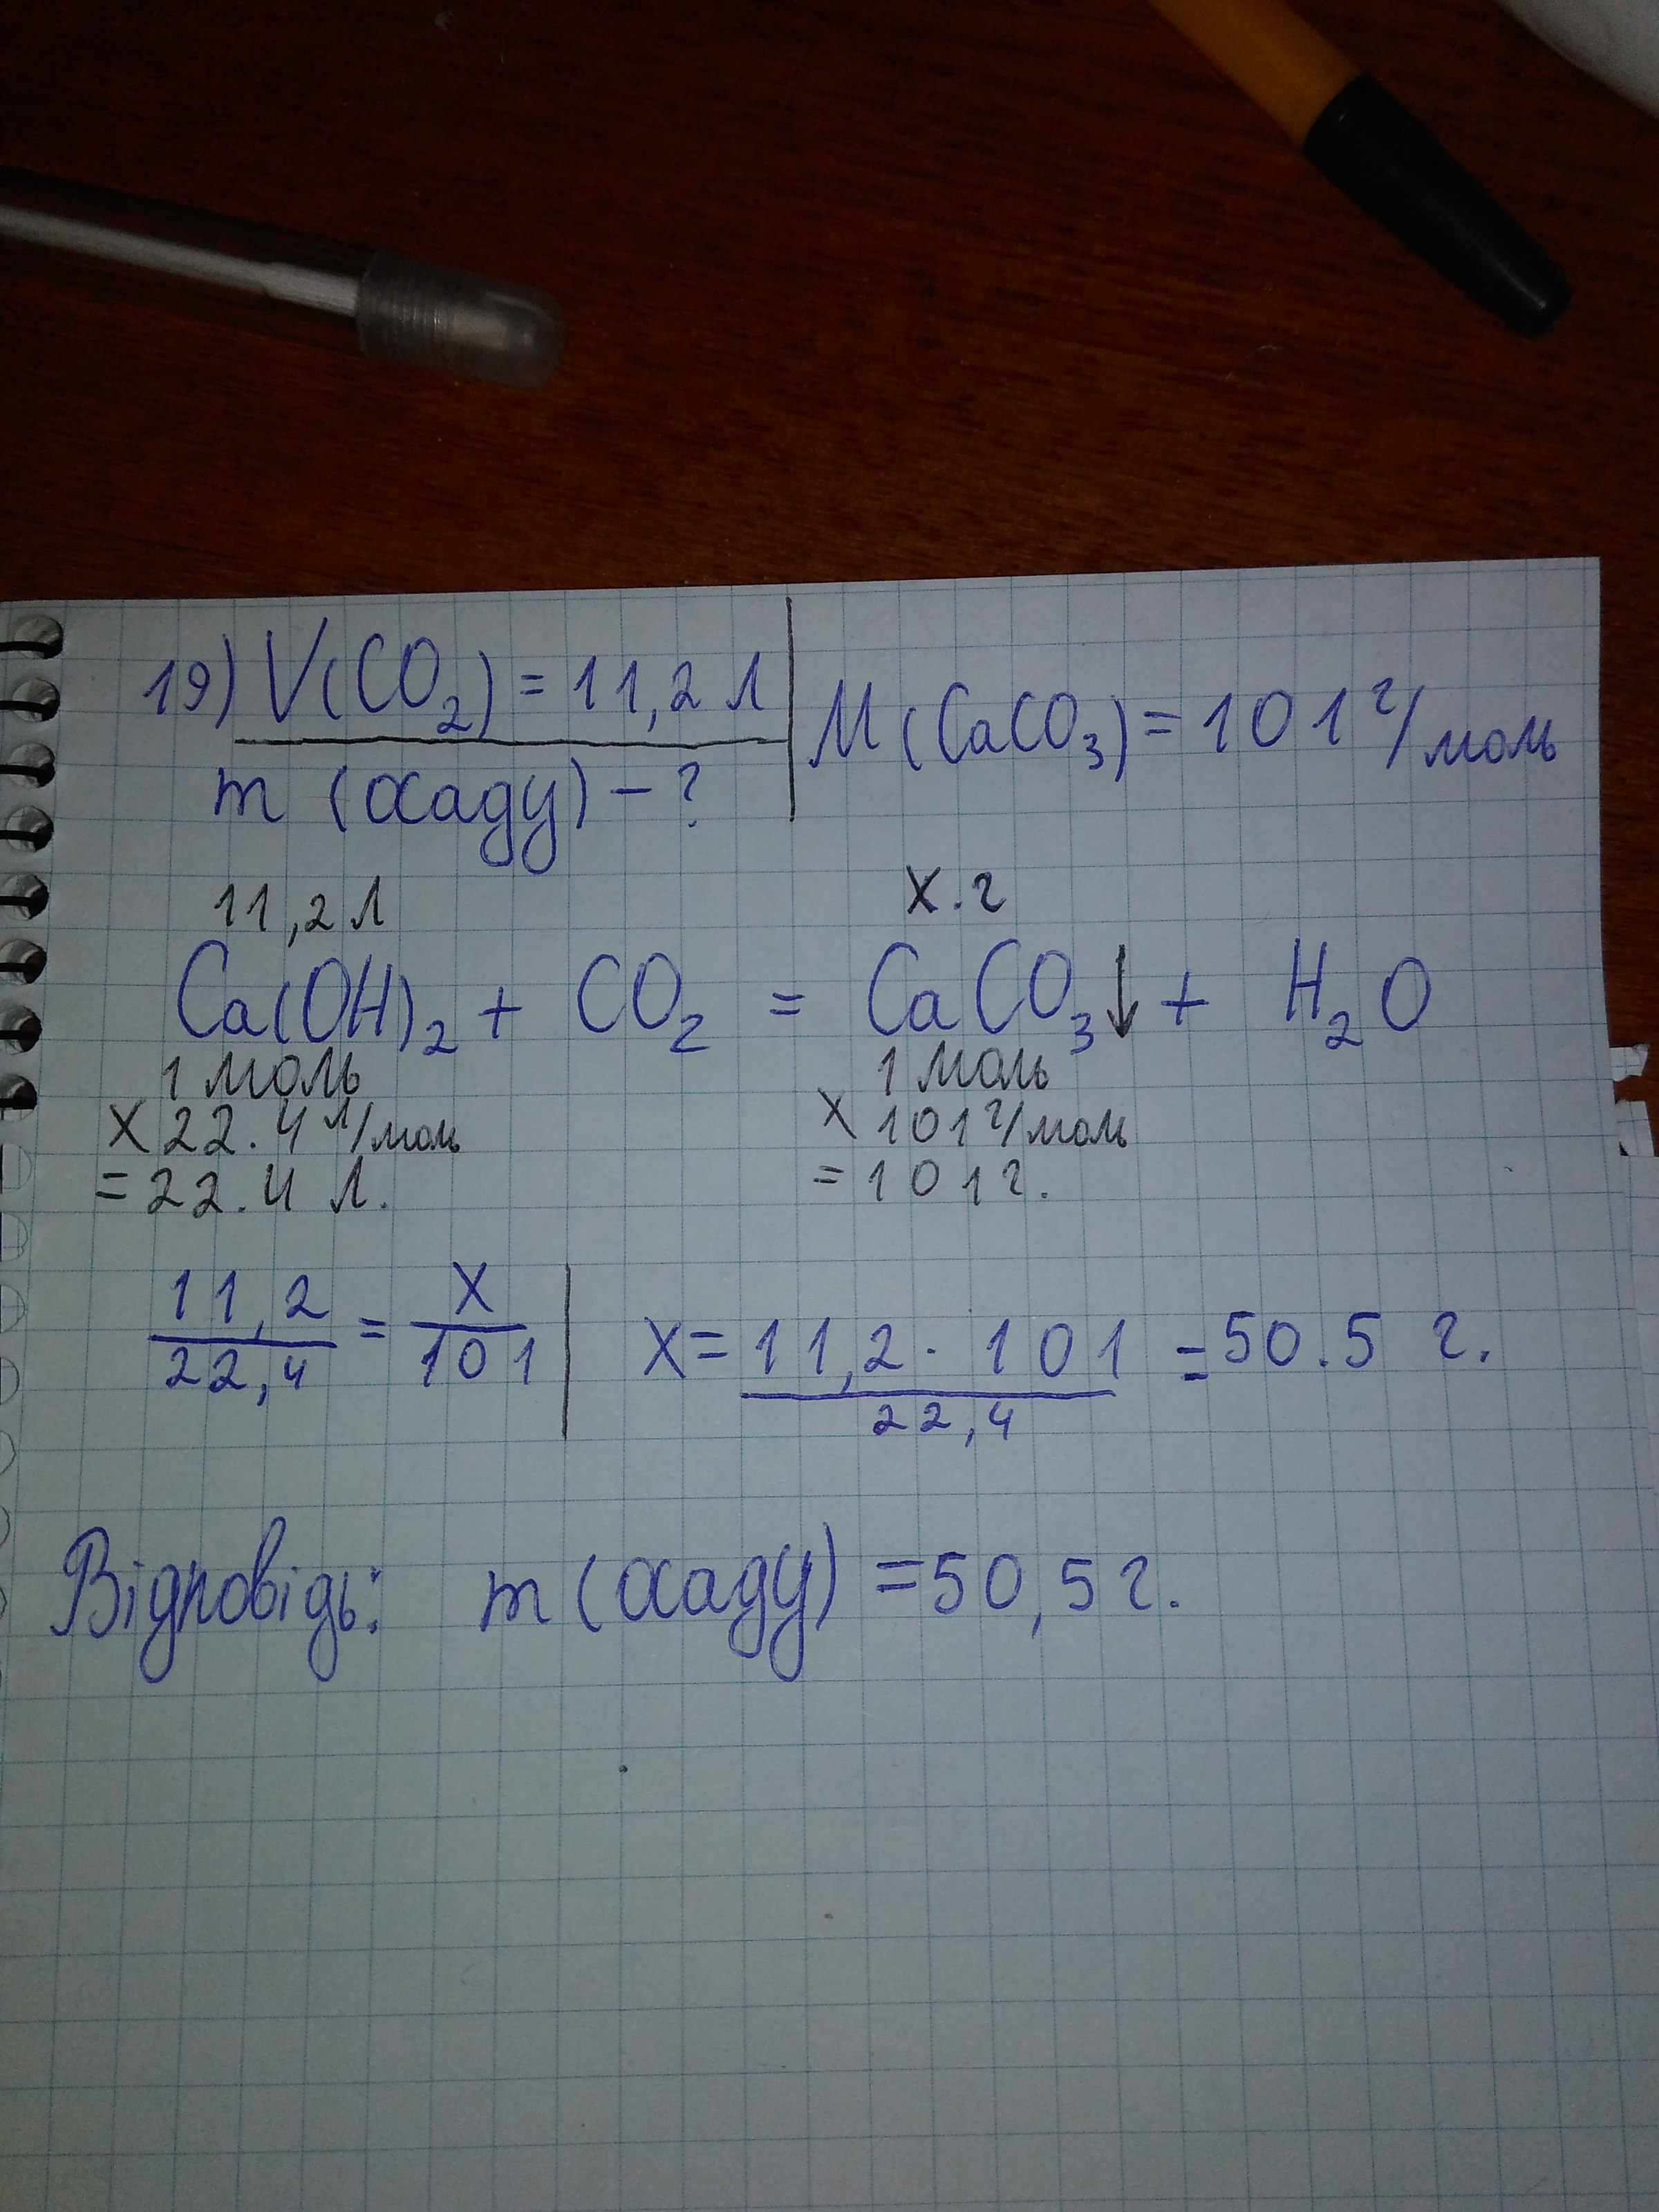 19) V(CO₂) = 11,2 л
m (осаду) – ?
M (CaCO₃) = 101 г/моль
11,2 л x.г
Ca(OH)₂ + CO₂ = CaCO₃↓ + H₂O
1 моль 1 моль
x 22.4 л/моль x 101 г/моль
= 22.4 л. = 101 г.
11,2/22,4 = x/101 | x = 11,2 · 101/22,4 = 50.5 г.
Відповідь: m (осаду) = 50,5 г.